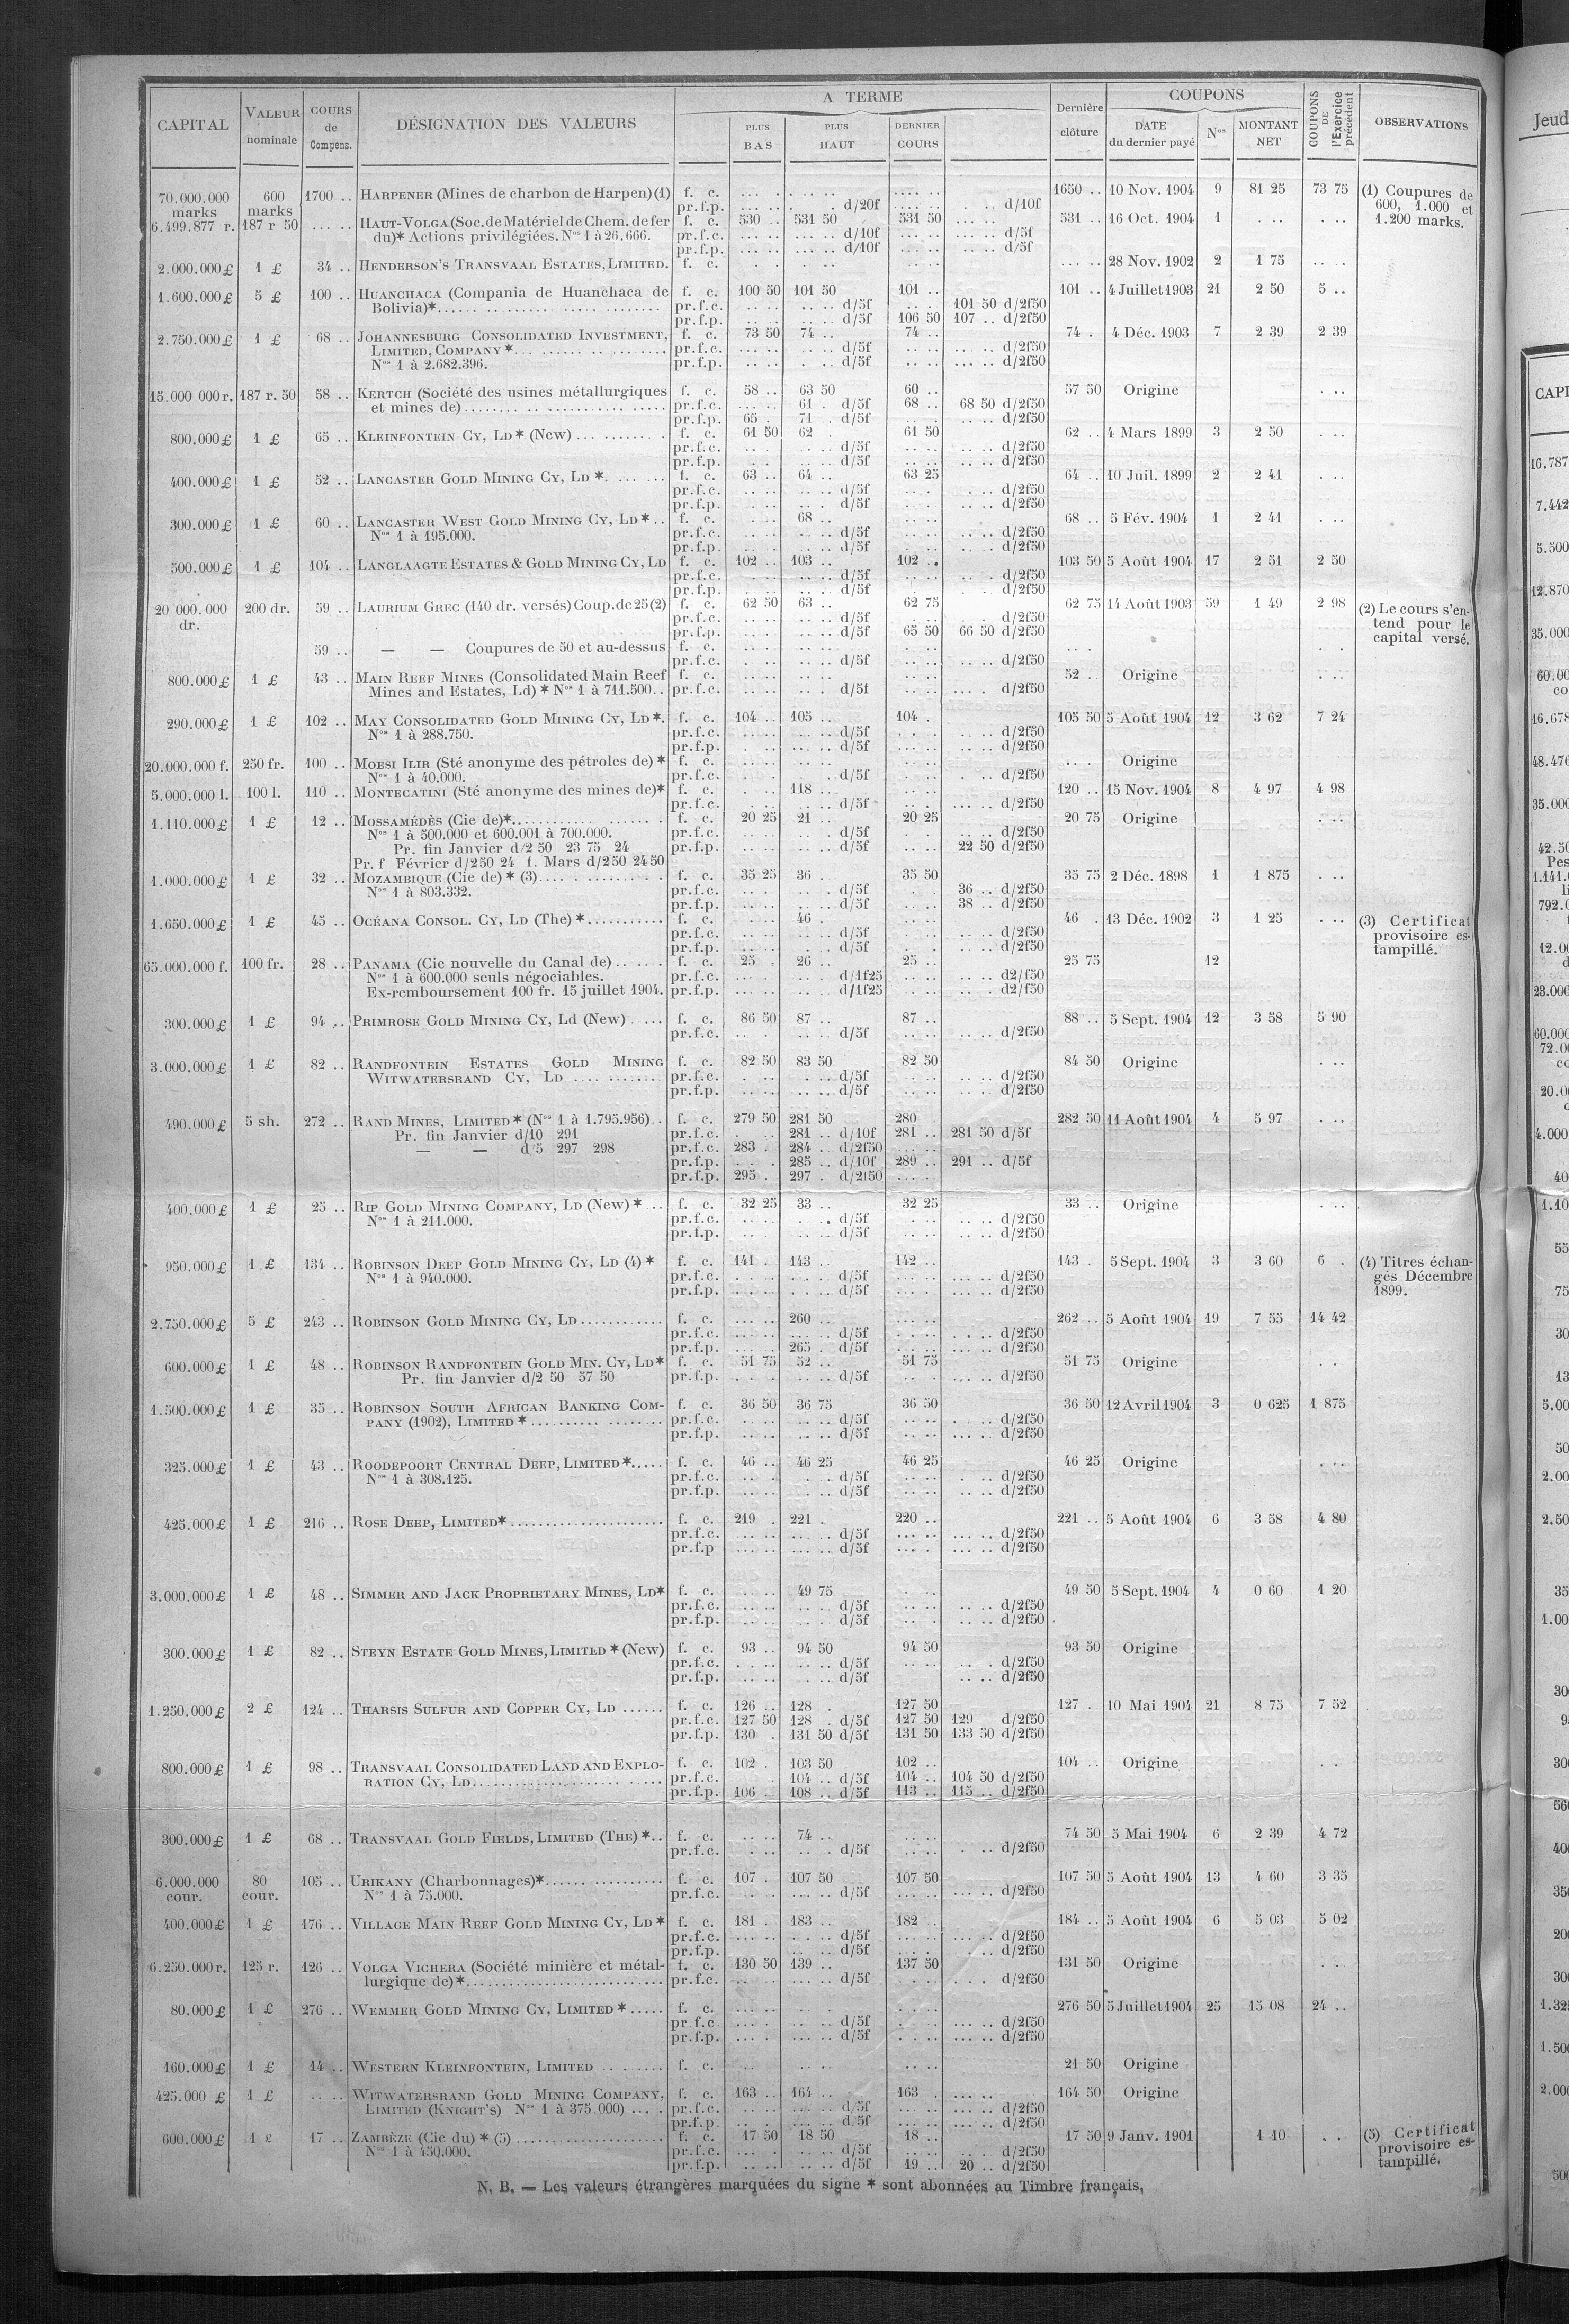 CAPITAL VALEUR nominale COURS de Compens. DÉSIGNATION DES VALEURS A TERME PLUS BAS PLUS HAUT DERNIER COURS Dernière clôture COUPONS DATE du dernier payé Nos MONTANT NET COUPONS DE l'Exercice précédent OBSERVATIONS
70.000.000 600 1700 .. HARPENER (Mines de charbon de Harpen)(1) f. c. 1650 .. 10 Nov. 1904 9 81 25 73 75 (1) Coupures de
marks marks pr.f.p. d/20f d/10f 600, 1.000 et
6.499.877 r. 187 r 50 HAUT-VOLGA (Soc. de Matériel de Chem. de fer f. c. 530 .. 531 50 531 50 531 .. 16 Oct. 1904 1 1.200 marks.
du)* Actions privilégiées. Nos 1 à 26.666. pr.f.c. d/10f d/5f
pr.f.p. d/10f d/5f
2.000.000 £ 1 £ 34 .. HENDERSON'S TRANSVAAL ESTATES, LIMITED. f. c. 28 Nov. 1902 2 1 75
1.600.000 £ 5 £ 100 .. HUANCHACA (Compania de Huanchaca de f. c. 100 50 101 50 101 .. 101 .. 4 Juillet 1903 21 2 50 5 ..
Bolivia)* pr.f.c. d/5f 101 50 d/2f50
pr.f.p. d/5f 106 50 107 .. d/2f50
2.750.000 £ 1 £ 68 .. JOHANNESBURG CONSOLIDATED INVESTMENT, f. c. 73 50 74 .. 74 .. 74 . 4 Déc. 1903 7 2 39 2 39
LIMITED, COMPANY * pr.f.c. d/5f d/2f50
Nos 1 à 2.682.396. pr.f.p. d/5f d/2f50
15.000 000 r. 187 r. 50 58 .. KERTCH (Société des usines métallurgiques f. c. 58 .. 63 50 60 .. 57 50 Origine
et mines de) pr.f.c. 61 . d/5f 68 .. 68 50 d/2f50
pr.f.p. 65 . 71 . d/5f d/2f50
800.000 £ 1 £ 65 .. KLEINFONTEIN CY, LD * (New) f. c. 61 50 62 . 61 50 62 .. 4 Mars 1899 3 2 50
pr.f.c. d/5f d/2f50
pr.f.p. d/5f d/2f50
400.000 £ 1 £ 52 .. LANCASTER GOLD MINING CY, LD *. f. c. 63 .. 64 .. 63 25 64 .. 10 Juil. 1899 2 2 41
pr.f.c. d/5f d/2f50
pr.f.p. d/5f d/2f50
300.000 £ 1 £ 60 .. LANCASTER WEST GOLD MINING CY, LD * .. f. c. 68 .. 68 .. 5 Fév. 1904 1 2 41
Nos 1 à 195.000. pr.f.c. d/5f d/2f50
pr.f.p. d/5f d/2f50
500.000 £ 1 £ 104 .. LANGLAAGTE ESTATES & GOLD MINING CY, LD f. c. 102 .. 103 .. 102 .. 103 50 5 Août 1904 17 2 51 2 50
pr.f.c. d/5f d/2f50
pr.f.p. d/5f
20 000.000 200 dr. 59 .. LAURIUM GREC (140 dr. versés) Coup. de 25 (2) f. c. 62 50 63 .. 62 75 62 75 14 Août 1903 59 1 49 2 98 (2) Le cours s'en-
dr. pr.f.c. d/5f d/2f50 tend pour le
pr.f.p. d/5f 65 50 66 50 d/2f50 capital versé.
59 .. — — Coupures de 50 et au-dessus f. c.
pr.f.c. d/5f d/2f50
800.000 £ 1 £ 43 .. MAIN REEF MINES (Consolidated Main Reef f. c. 52 . Origine
Mines and Estates, Ld) * Nos 1 à 711.500.. pr.f.c. d/5f d/2f50
290.000 £ 1 £ 102 .. MAY CONSOLIDATED GOLD MINING CY, LD *. f. c. 104 .. 105 .. 104 . 105 50 5 Août 1904 12 3 62 7 24
Nos 1 à 288.750. pr.f.c. d/5f d/2f50
pr.f.p. d/5f d/2f50
20.000.000 f. 250 fr. 100 .. MOESI ILIR (Sté anonyme des pétroles de) * f. c. Origine
Nos 1 à 40.000. pr.f.c. d/5f d/2f50
5.000.000 l. 100 l. 110 .. MONTECATINI (Sté anonyme des mines de)* f. c. 118 .. 120 .. 15 Nov. 1904 8 4 97 4 98
pr.f.c. d/5f d/2f50
1.110.000 £ 1 £ 12 .. MOSSAMÉDÈS (Cie de)* f. c. 20 25 21 .. 20 25 20 75 Origine
Nos 1 à 500.000 et 600.001 à 700.000. pr.f.c. d/5f d/2f50
Pr. fin Janvier d/2 50 23 75 24 pr.f.p. d/5f 22 50 d/2f50
Pr. f Février d/2 50 24 f. Mars d/2 50 24 50
1.000.000 £ 1 £ 32 .. MOZAMBIQUE (Cie de) * (3) f. c. 35 25 36 .. 35 50 35 75 2 Déc. 1898 1 1 875
Nos 1 à 803.332. pr.f.c. d/5f 36 .. d/2f50
pr.f.p. d/5f 38 .. d/2f50
1.650.000 £ 1 £ 45 .. OCÉANA CONSOL. CY, LD (The) * f. c. 46 . 46 . 13 Déc. 1902 3 1 25 (3) Certificat
pr.f.c. d/5f d/2f50 provisoire es-
pr.f.p. d/5f d/2f50 tampillé.
65.000.000 f. 100 fr. 28 .. PANAMA (Cie nouvelle du Canal de) f. c. 25 . 26 .. 25 .. 25 75 12
Nos 1 à 600.000 seuls négociables. pr.f.c. d/1f25 d2/f50
Ex-remboursement 100 fr. 15 juillet 1904. pr.f.p. d/1f25 d2/f50
300.000 £ 1 £ 94 .. PRIMROSE GOLD MINING CY, Ld (New) f. c. 86 50 87 .. 87 .. 88 .. 5 Sept. 1904 12 3 58 5 90
pr.f.c. d/5f d/2f50
3.000.000 £ 1 £ 82 .. RANDFONTEIN ESTATES GOLD MINING f. c. 82 50 83 50 82 50 84 50 Origine
WITWATERSRAND CY, LD pr.f.c. d/5f d/2f50
pr.f.p. d/5f d/2f50
490.000 £ 5 sh. 272 .. RAND MINES, LIMITED * (Nos 1 à 1.795.956).. f. c. 279 50 281 50 280 282 50 11 Août 1904 4 5 97
Pr. fin Janvier d/10 291 pr.f.c. 281 .. d/10f 281 .. 281 50 d/5f
— — d 5 297 298 pr.f.c. 283 . 284 . d/2f50
pr.f.p. 285 .. d/10f 289 .. 291 .. d/5f
pr.f.p. 295 . 297 . d/2f50
400.000 £ 1 £ 25 .. RIP GOLD MINING COMPANY, LD (New) * .. f. c. 32 25 33 .. 32 25 33 .. Origine
Nos 1 à 211.000. pr.f.c. d/5f d/2f50
pr.f.p. d/5f d/2f50
950.000 £ 1 £ 134 .. ROBINSON DEEP GOLD MINING CY, LD (4) * f. c. 141 . 143 .. 142 .. 143 . 5 Sept. 1904 3 3 60 6 . (4) Titres échan-
Nos 1 à 940.000. pr.f.c. d/5f d/2f50 gés Décembre
pr.f.p. d/5f d/2f50 1899.
2.750.000 £ 5 £ 243 .. ROBINSON GOLD MINING CY, LD f. c. 260 .. 262 .. 5 Août 1904 19 7 55 14 42
pr.f.c. d/5f d/2f50
pr.f.p. 265 . d/5f d/2f50
600.000 £ 1 £ 48 .. ROBINSON RANDFONTEIN GOLD MIN. CY, LD* f. c. 51 75 52 .. 51 75 51 75 Origine
Pr. fin Janvier d/2 50 57 50 pr.f.p. d/5f d/2f50
1.500.000 £ 1 £ 35 .. ROBINSON SOUTH AFRICAN BANKING COM- f. c. 36 50 36 75 36 50 36 50 12 Avril 1904 3 0 625 1 875
PANY (1902), LIMITED * pr.f.c. d/5f d/2f50
pr.f.p. d/5f d/2f50
325.000 £ 1 £ 43 .. ROODEPOORT CENTRAL DEEP, LIMITED * f. c. 46 .. 46 25 46 25 46 25 Origine
Nos 1 à 308.125. pr.f.c. d/5f d/2f50
pr.f.p. d/5f d/2f50
425.000 £ 1 £ 216 .. ROSE DEEP, LIMITED * f. c. 219 . 221 . 220 .. 221 .. 5 Août 1904 6 3 58 4 80
pr.f.c. d/5f d/2f50
pr.f.p d/5f d/2f50
3.000.000 £ 1 £ 48 .. SIMMER AND JACK PROPRIETARY MINES, LD* f. c. 49 75 49 50 5 Sept. 1904 4 0 60 1 20
pr.f.c. d/5f d/2f50
pr.f.p. d/5f d/2f50
300.000 £ 1 £ 82 .. STEYN ESTATE GOLD MINES, LIMITED * (New) f. c. 93 .. 94 50 94 50 93 50 Origine
pr.f.c. d/5f d/2f50
pr.f.p. d/5f d/2f50
1.250.000 £ 2 £ 124 .. THARSIS SULFUR AND COPPER CY, LD f. c. 126 .. 128 . 127 50 127 . 10 Mai 1904 21 8 75 7 52
pr.f.c. 127 50 128 . d/5f 127 50 129 d/2f50
pr.f.p. 130 . 131 50 d/5f 131 50 133 50 d/2f50
800.000 £ 1 £ 98 .. TRANSVAAL CONSOLIDATED LAND AND EXPLO- f. c. 102 . 103 50 102 .. 104 .. Origine
RATION CY, LD pr.f.c. 104 .. d/5f 104 .. 104 50 d/2f50
pr.f.p. 106 108 .. d/5f 113 .. 115 .. d/2f50
300.000 £ 1 £ 68 .. TRANSVAAL GOLD FIELDS, LIMITED (THE) * .. f. c. 74 .. 74 50 5 Mai 1904 6 2 39 4 72
pr.f.c. d/5f d/2f50
6.000.000 80 105 .. URIKANY (Charbonnages)* f. c. 107 . 107 50 107 50 107 50 5 Août 1904 13 4 60 3 35
cour. cour. Nos 1 à 75.000. pr.f.c. d/5f d/2f50
400.000 £ 1 £ 176 .. VILLAGE MAIN REEF GOLD MINING CY, LD * f. c. 181 . 183 .. 182 . 184 .. 5 Août 1904 6 5 03 5 02
pr.f.c. d/5f d/2f50
pr.f.p. d/5f d/2f50
6.250.000 r. 125 r. 126 .. VOLGA VICHERA (Société minière et métal- f. c. 130 50 139 .. 137 50 131 50 Origine
lurgique de) * pr.f.c. d/5f d/2f50
80.000 £ 1 £ 276 .. WEMMER GOLD MINING CY, LIMITED * f. c. 276 50 5 Juillet 1904 25 15 08 24 ..
pr f.c d/5f d/2f50
pr.f.p. d/5f d/2f50
160.000 £ 1 £ 14 .. WESTERN KLEINFONTEIN, LIMITED f. c. 21 50 Origine
425.000 £ 1 £ WITWATERSRAND GOLD MINING COMPANY, f. c. 163 .. 164 .. 163 . 164 50 Origine
LIMITED (KNIGHT'S) Nos 1 à 375.000) pr.f.c. d/5f d/2f50
pr.f.p. d/5f d/2f50
600.000 £ 1 £ 17 .. ZAMBÈZE (Cie du) * (5) f. c. 17 50 18 50 18 .. 17 50 9 Janv. 1901 1 10 (5) Certificat
Nos 1 à 450.000. pr.f.c. d/5f d/2f50 provisoire es-
pr.f.p. d/5f 19 .. 20 .. d/2f50 tampillé.
N. B. — Les valeurs étrangères marquées du signe * sont abonnées au Timbre français.
Jeud
CAPI
16.787
7.442
5.500
12.870
35.000
60.00
co
16.678
48.476
35.000
42.50
Pes
1.141.
792.0
12.00
23.000
60.000
72.0
20.0
4.000